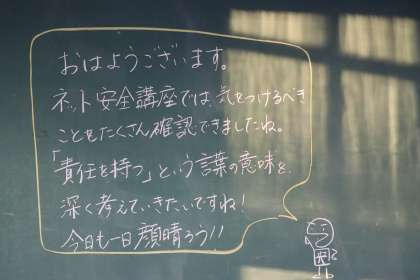 おはようございます。
ネット安全講座では、気をつけるべき
ことをたくさん確認できましたね。
「責任を持つ」という言葉の意味を、
深く考えていきたいですね!
今日も一日顔晴ろう!!